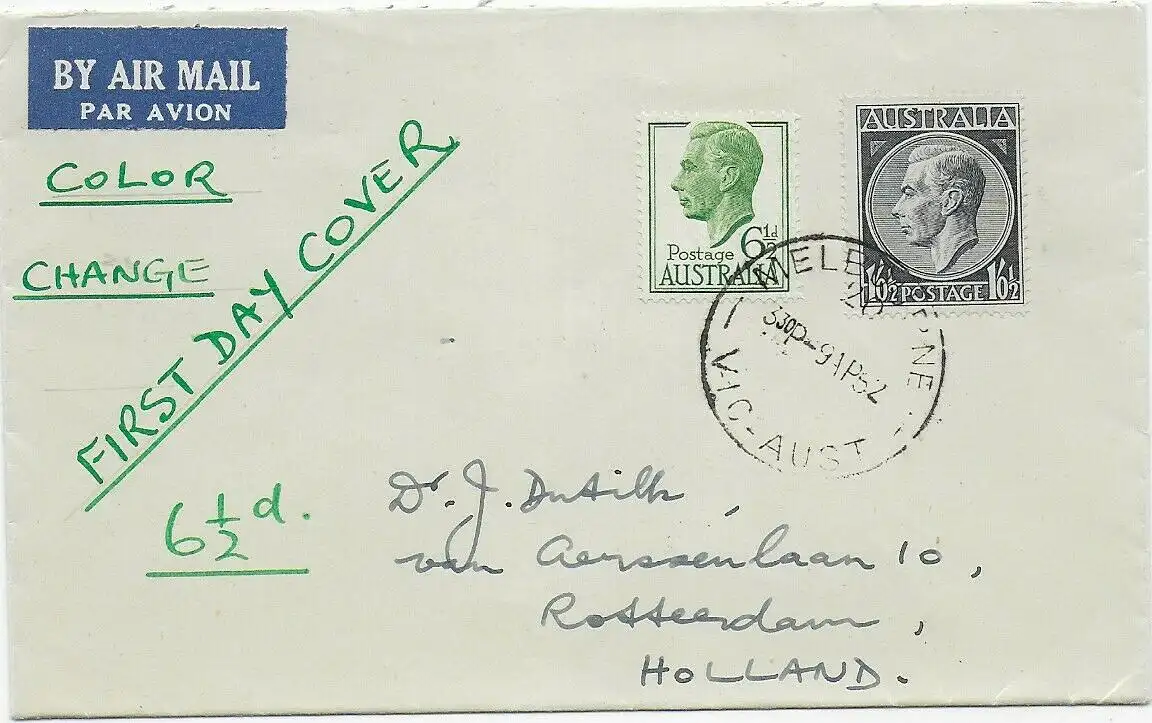 BY AIR MAIL
PAR AVION
COLOR
CHANGE
FIRST DAY COVER
6 1/2 d.
Postage 6 1/2 d
AUSTRALIA
AUSTRALIA
1/0 1/2 POSTAGE 1/0 1/2
MELBOURNE
20
3 30P-9AP52
VIC-AUST
Dr. J. Dutilh,
van Aerssenlaan 10,
Rotterdam,
HOLLAND.